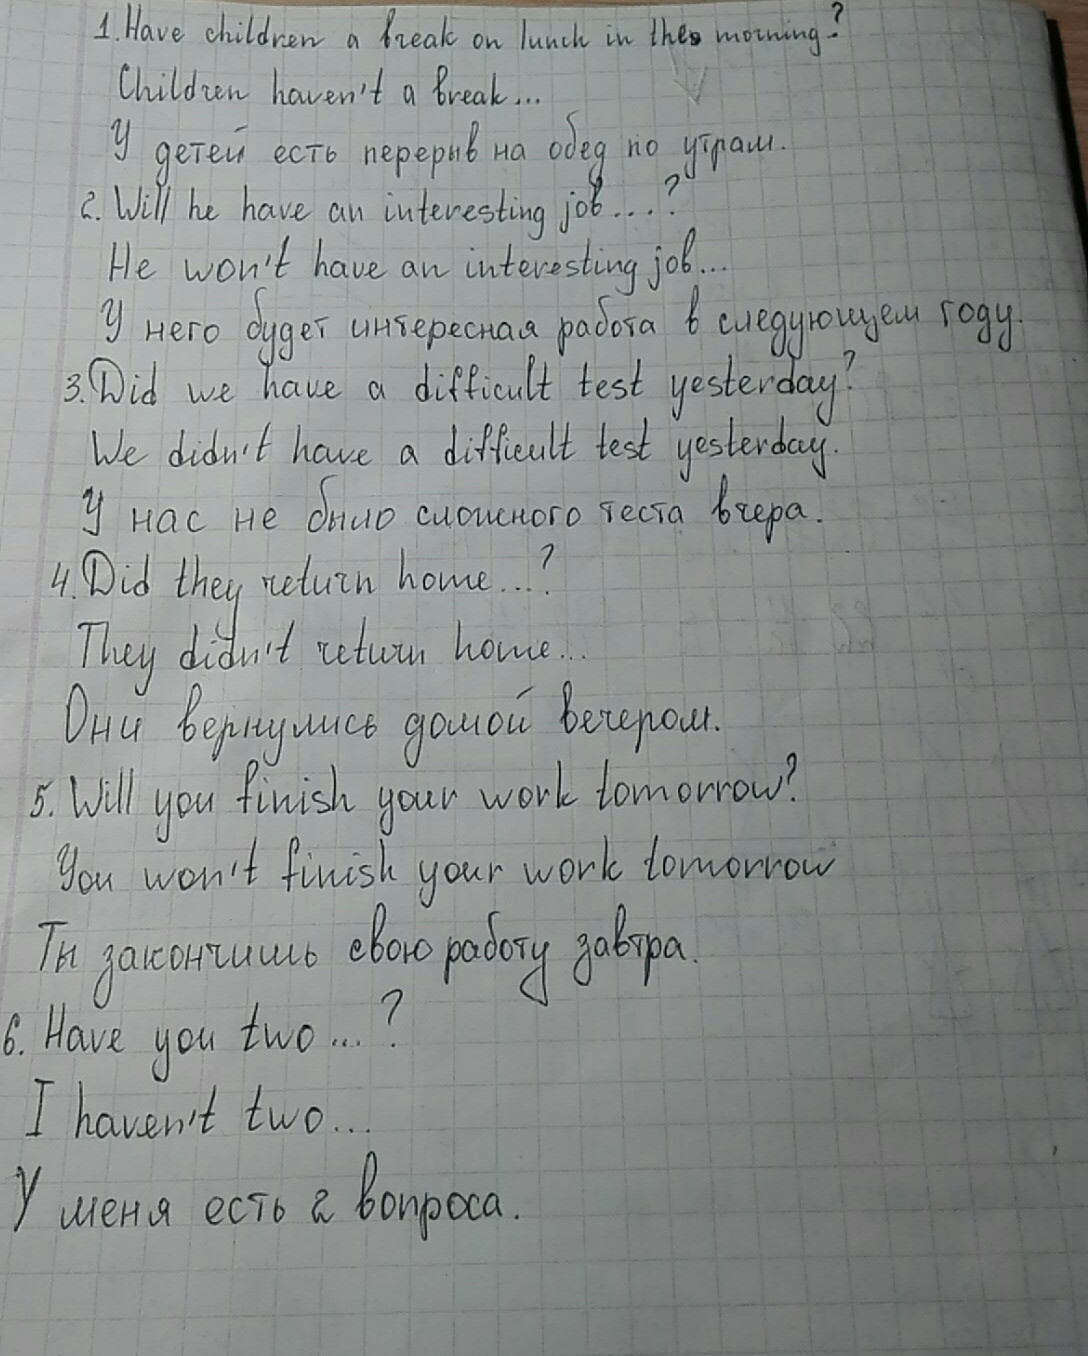 1. Have children a break on lunch in the morning?
Children haven't a break...
У детей есть перерыв на обед по утрам.
2. Will he have an interesting job....?
He won't have an interesting job...
У него будет интересная работа в следующем году.
3. Did we have a difficult test yesterday?
We didn't have a difficult test yesterday.
У нас не было сложного теста вчера.
4. Did they return home....?
They didn't return home...
Они вернулись домой вечером.
5. Will you finish your work tomorrow?
You won't finish your work tomorrow
Ты закончишь свою работу завтра.
6. Have you two...?
I haven't two...
У меня есть 2 вопроса.